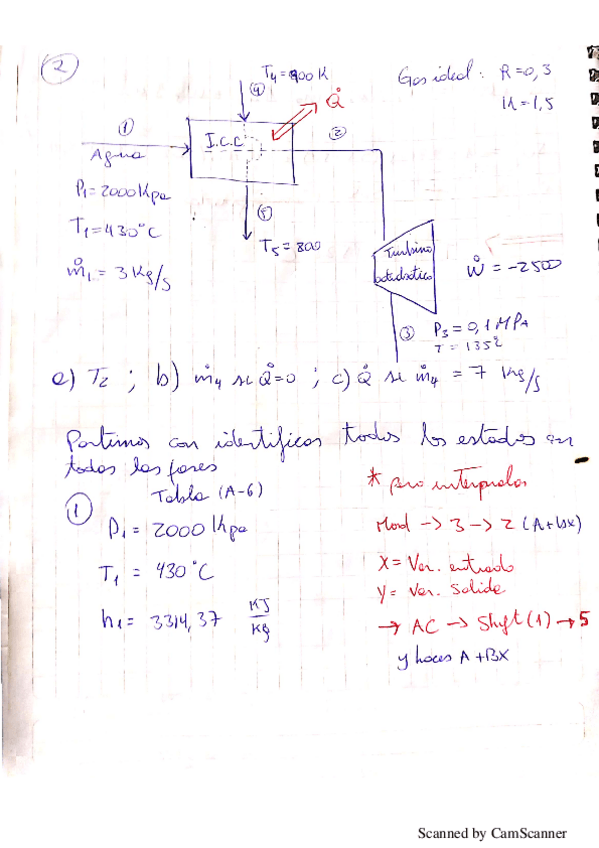 2
T4 = 900 K
Gas ideal: R=0,3
K=1,5
4
Q̇
1
I.C.C
2
Agua
P1 = 2000 Kpa
T1 = 430°C
ṁ1 = 3 Kg/s
5
T5 = 800
Turbina
Ẇ = -2500
3
P3 = 0,1 MPa
a) T2 ; b) ṁ4 si Q̇=0 ; c) Q̇ si ṁ4 = 7 Kg/s
Partimos con identificar todos los estados en
todas las fases
Tabla (A-6)
1
P1 = 2000 Kpa
T1 = 430°C
h1 = 3314,37 KJ/Kg
* para interpolar
Mod -> 3 -> 2 (A+bx)
X = Var. entrada
Y = Var. salida
-> AC -> Shyft (1) -> 5
y haces A+BX
Scanned by CamScanner